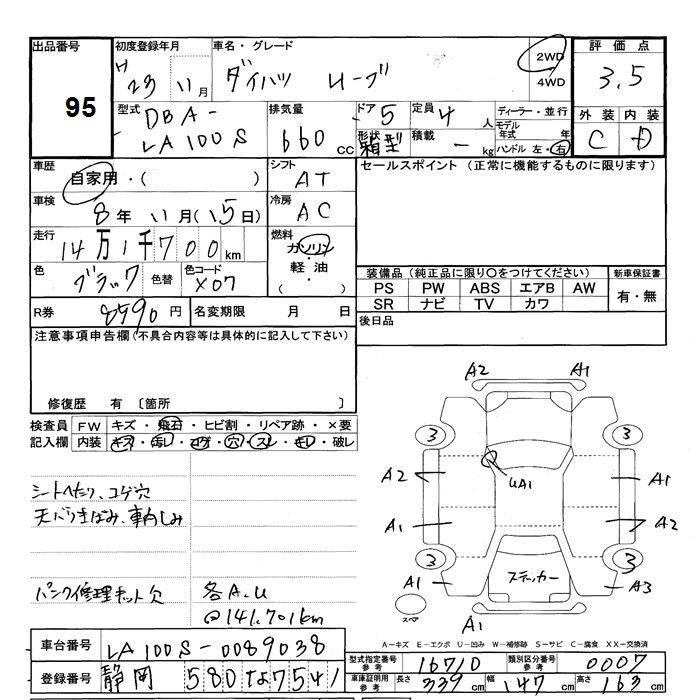 出品番号 初度登録年月 車名・グレード 2WD 4WD 評価点
95 H 23 11月 ダイハツ ムーブ 3.5
型式 DBA-LA100S 排気量 660 cc ドア 5 定員 4 人 ディーラー・並行 外装 内装
形状 箱型 積載 - kg モデル年式 年 ハンドル 左・右 C D
車歴 自家用・( ) シフト AT セールスポイント (正常に機能するものに限ります)
車検 8年 11月(15日) 冷房 AC
走行 14万1千700km 燃料 ガソリン・軽油・( )
色 ブラック 色替 色コード X07 装備品 (純正品に限り○をつけてください) 新車保証書
PS PW ABS エアB AW 有・無
R券 8590円 名変期限 月 日 SR ナビ TV カワ
注意事項申告欄(不具合内容等は具体的に記入して下さい) 後日品
修復歴 有 〔箇所
検査員 FW キズ・飛石・ヒビ割・リペア跡・×要
記入欄 内装 キズ・汚レ・コゲ・穴・スレ・キレ・破レ
シートへたり、コゲ穴
天バリきばみ、車内しみ
パンク修理キット欠 各A.U
@141,701km
A2 A1
3 3
A2 UA1 A1
A1 A2
3 3
A1 ステッカー A3
スペア A1
A-キズ E-エクボ U-凹み W-補修跡 S-サビ C-腐食 XX-交換済
車台番号 LA100S-0089038
登録番号 静岡 580 な7541
型式指定番号 参考 16710 類別区分番号 参考 0007
車庫証明用 参考 長さ 339cm 幅 147cm 高さ 163cm